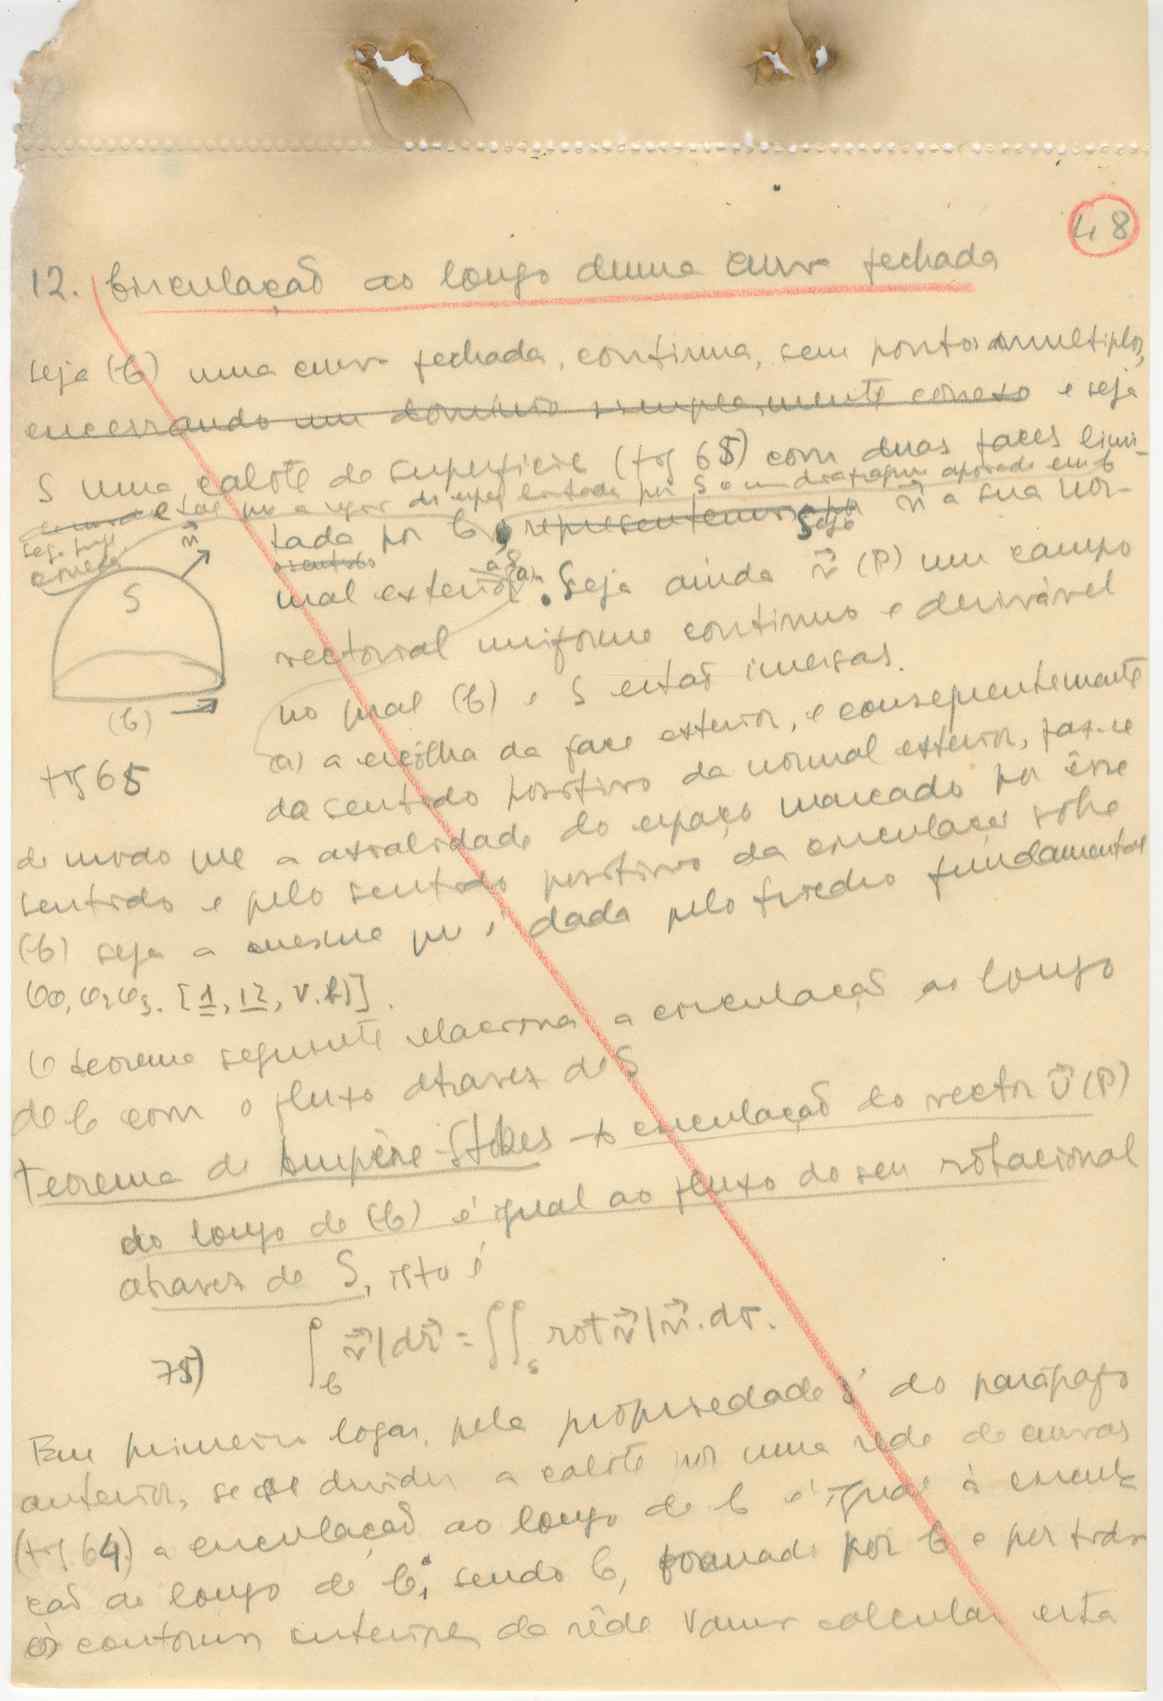 48
12. Circulação ao longo duma curva fechada
seja (C) uma curva fechada, continua, sem pontos multiplos,
encerrando um dominio simplesmente conexo e seja
S uma calote de superficie (fig 65) com duas faces limi-
e tal que a região do espaço limitada por S e um diafragma apoiado em C
seja
conexa
tada por C, representemos por seja n⃗ a sua nor-
o sentido
mal exterior (a). Seja ainda v⃗ (P) um campo
vectorial uniforme continuo e derivável
no qual (C) e S estão imersas.
n⃗
S
(C)
fig 65
(a) a escolha da face exterior, e consequentemente
do sentido positivo da normal exterior, faz-se
de modo que a axialidade do espaço marcado por êsse
sentido e pelo sentido positivo da circulação sobre
(C) seja a mesma que é dada pelo triedro fundamental
[1, 12, V. b)].
O teorema seguinte relaciona a circulação ao longo
de C com o fluxo atravez de S
Teorema de Ampère-Stokes - A circulação do vector v⃗ (P)
ao longo de (C) é igual ao fluxo do seu rotacional
atravez de S, isto é
75) ∫_C v⃗|dr⃗ = ∫∫_S rot v⃗|n⃗.dσ.
Em primeiro logar, pela propriedade do parágrafo
anterior, se se dividir a calote por uma rede de curvas
(fig. 64) a circulação ao longo de C é igual à circula-
ção ao longo de C, sendo C, formado por C e por todos
os contornos interiores da rêde. Vamos calcular esta